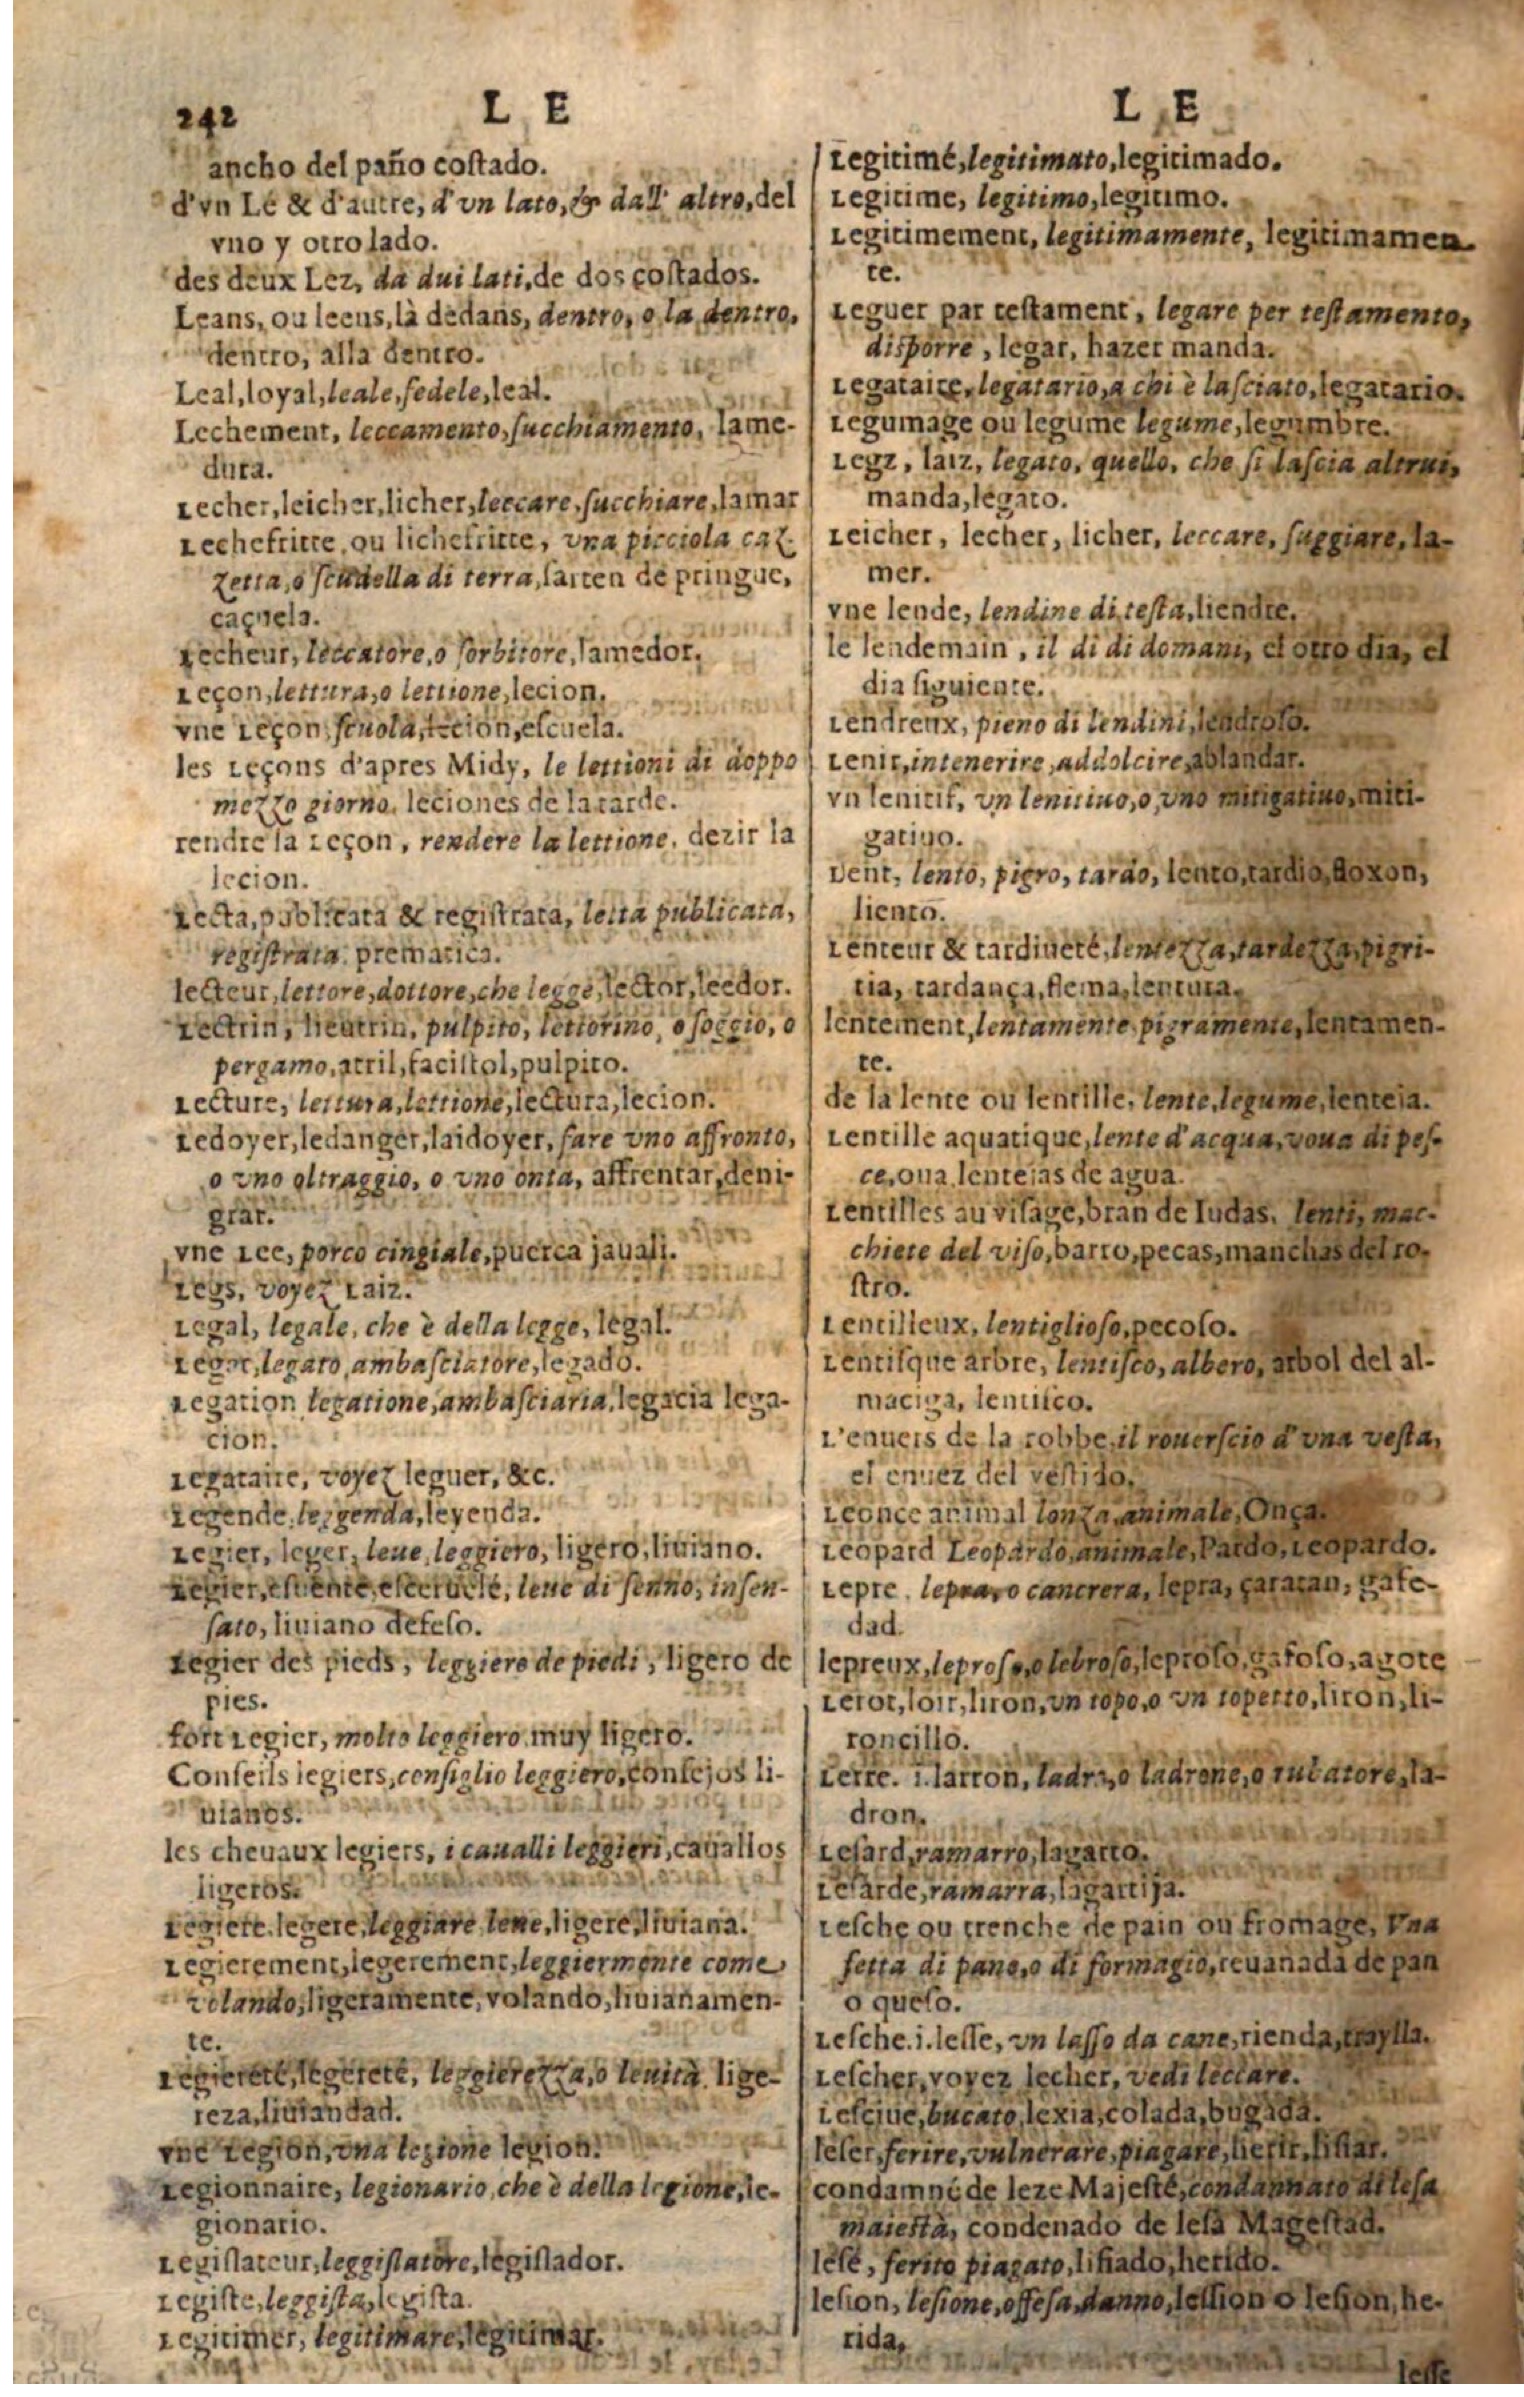 242 L E
ancho del paño coſtado.
d'vn Lé & d'autre, d'vn lato, & dall' altro, del
vno y otro lado.
des deux Lez, da dui lati, de dos coſtados.
Leans, ou leens, là dedans, dentro, o la dentro,
dentro, alla dentro.
Leal, loyal, leale, fedele, leal.
Lechement, leccamento, ſucchiamento, lame-
dura.
Lecher, leicher, licher, leccare, ſucchiare, lamar
Lechefritte ou lichefritte, vna picciola caz-
zetta, o ſcudella di terra, ſarten de pringue,
caçuela.
Lecheur, leccatore, o ſorbitore, lamedor.
Leçon, lettura, o lettione, lecion.
vne Leçon, ſcuola, lecion, eſcuela.
les Leçons d'apres Midy, le lettioni di doppo
mezzo giorno, leciones de la tarde.
rendre ſa Leçon, rendere la lettione, dezir la
lecion.
Lecta, publicata & regiſtrata, letta publicata,
regiſtrata, prematica.
lecteur, lettore, dottore, che legge, lector, leedor.
Lectrin, lieutrin, pulpito, lettorino, o ſoggio, o
pergamo, atril, faciſtol, pulpito.
Lecture, lettura, lettione, lectura, lecion.
Ledoyer, ledanger, laidoyer, fare vno affronto,
o vno oltraggio, o vno onta, affrentar, deni-
grar.
vne Lee, porco cingiale, puerca jauali.
Legs, voyez Laiz.
Legal, legale, che è della legge, legal.
Legat, legato, ambaſciatore, legado.
Legation legatione, ambaſciaria, legacia lega-
cion.
Legataire, voyez leguer, &c.
Legende, leggenda, leyenda.
Legier, leger, leue, leggiero, ligero, liuiano.
Legier, eſuenté, eſceruelé, leue di ſenno, inſen-
ſato, liuiano deſeſo.
Legier des pieds, leggiero de piedi, ligero de
pies.
fort Legier, molto leggiero, muy ligero.
Conſeils legiers, conſiglio leggiero, conſejos li-
uianos.
les cheuaux legiers, i caualli leggieri, cauallos
ligeros.
Legiere, legere, leggiare lene, ligere, liuiana.
Legierement, legerement, leggiermente come
volando, ligeramente, volando, liuianamen-
te.
Legiereté, legereté, leggierezza, o leuità, lige-
reza, liuiandad.
vne Legion, vna legione legion.
Legionnaire, legionario, che è della legione, le-
gionario.
Legiſlateur, leggiſlatore, legiſlador.
Legiſte, leggiſta, legiſta.
Legitimer, legitimare, legitimar.
L E
Legitimé, legitimato, legitimado.
Legitime, legitimo, legitimo.
Legitimement, legitimamente, legitimamen-
te.
Leguer par teſtament, legare per teſtamento,
diſporre, legar, hazer manda.
Legataire, legatario, a chi è laſciato, legatario.
Legumage ou legume legume, legumbre.
Legz, laiz, legato, quello, che ſi laſcia altrui,
manda, legato.
Leicher, lecher, licher, leccare, ſuggiare, la-
mer.
vne lende, lendine di teſta, liendre.
le lendemain, il di di domani, el otro dia, el
dia ſiguiente.
Lendreux, pieno di lendini, lendroſo.
Lenir, intenerire, addolcire, ablandar.
vn lenitif, vn lenitiuo, o vno mitigatiuo, miti-
gatiuo.
Lent, lento, pigro, tardo, lento, tardio, floxon,
liento.
Lenteur & tardiueté, lentezza, tardezza, pigri-
tia, tardança, flema, lentura.
lentement, lentamente, pigramente, lentamen-
te.
de la lente ou lentille, lente, legume, lenteia.
Lentille aquatique, lente d'acqua, voua di peſ-
ce, oua, lentejas de agua.
Lentilles au viſage, bran de Iudas, lenti, mac-
chiete del viſo, barro, pecas, manchas del ro-
ſtro.
Lentilleux, lentiglioſo, pecoſo.
Lentiſque arbre, lentiſco, albero, arbol del al-
maciga, lentiſco.
L'enuers de la robbe, il rouerſcio d'vna veſta,
el enuez del veſtido.
Leonce animal lonza, animale, Onça.
Leopard Leopardo, animale, Pardo, Leopardo.
Lepre, lepra, o cancrera, lepra, çaratan, gafe-
dad.
lepreux, leproſo, o lebroſo, leproſo, gafoſo, agote
Lerot, loir, liron, vn topo, o vn topetto, liron, li-
roncillo.
Lerre. i. larron, ladro, o ladrone, o rubatore, la-
dron.
Leſard, ramarro, lagarto.
Leſarde, ramarra, lagartija.
Leſche ou trenche de pain ou fromage, Vna
fetta di pane, o di formagio, reuanada de pan
o queſo.
Leſche. i. leſſe, vn laſſo da cane, rienda, traylla.
Leſcher, voyez lecher, vedi leccare.
Leſciue, bucato, lexia, colada, bugada.
leſer, ferire, vulnerare, piagare, herir, liſiar.
condamné de leze Majeſté, condannato di leſa
maieſtà, condenado de leſa Mageſtad.
leſé, ferito piagato, liſiado, herido.
leſion, leſione, offeſa, danno, leſſion o leſion, he-
rida,
leſſe